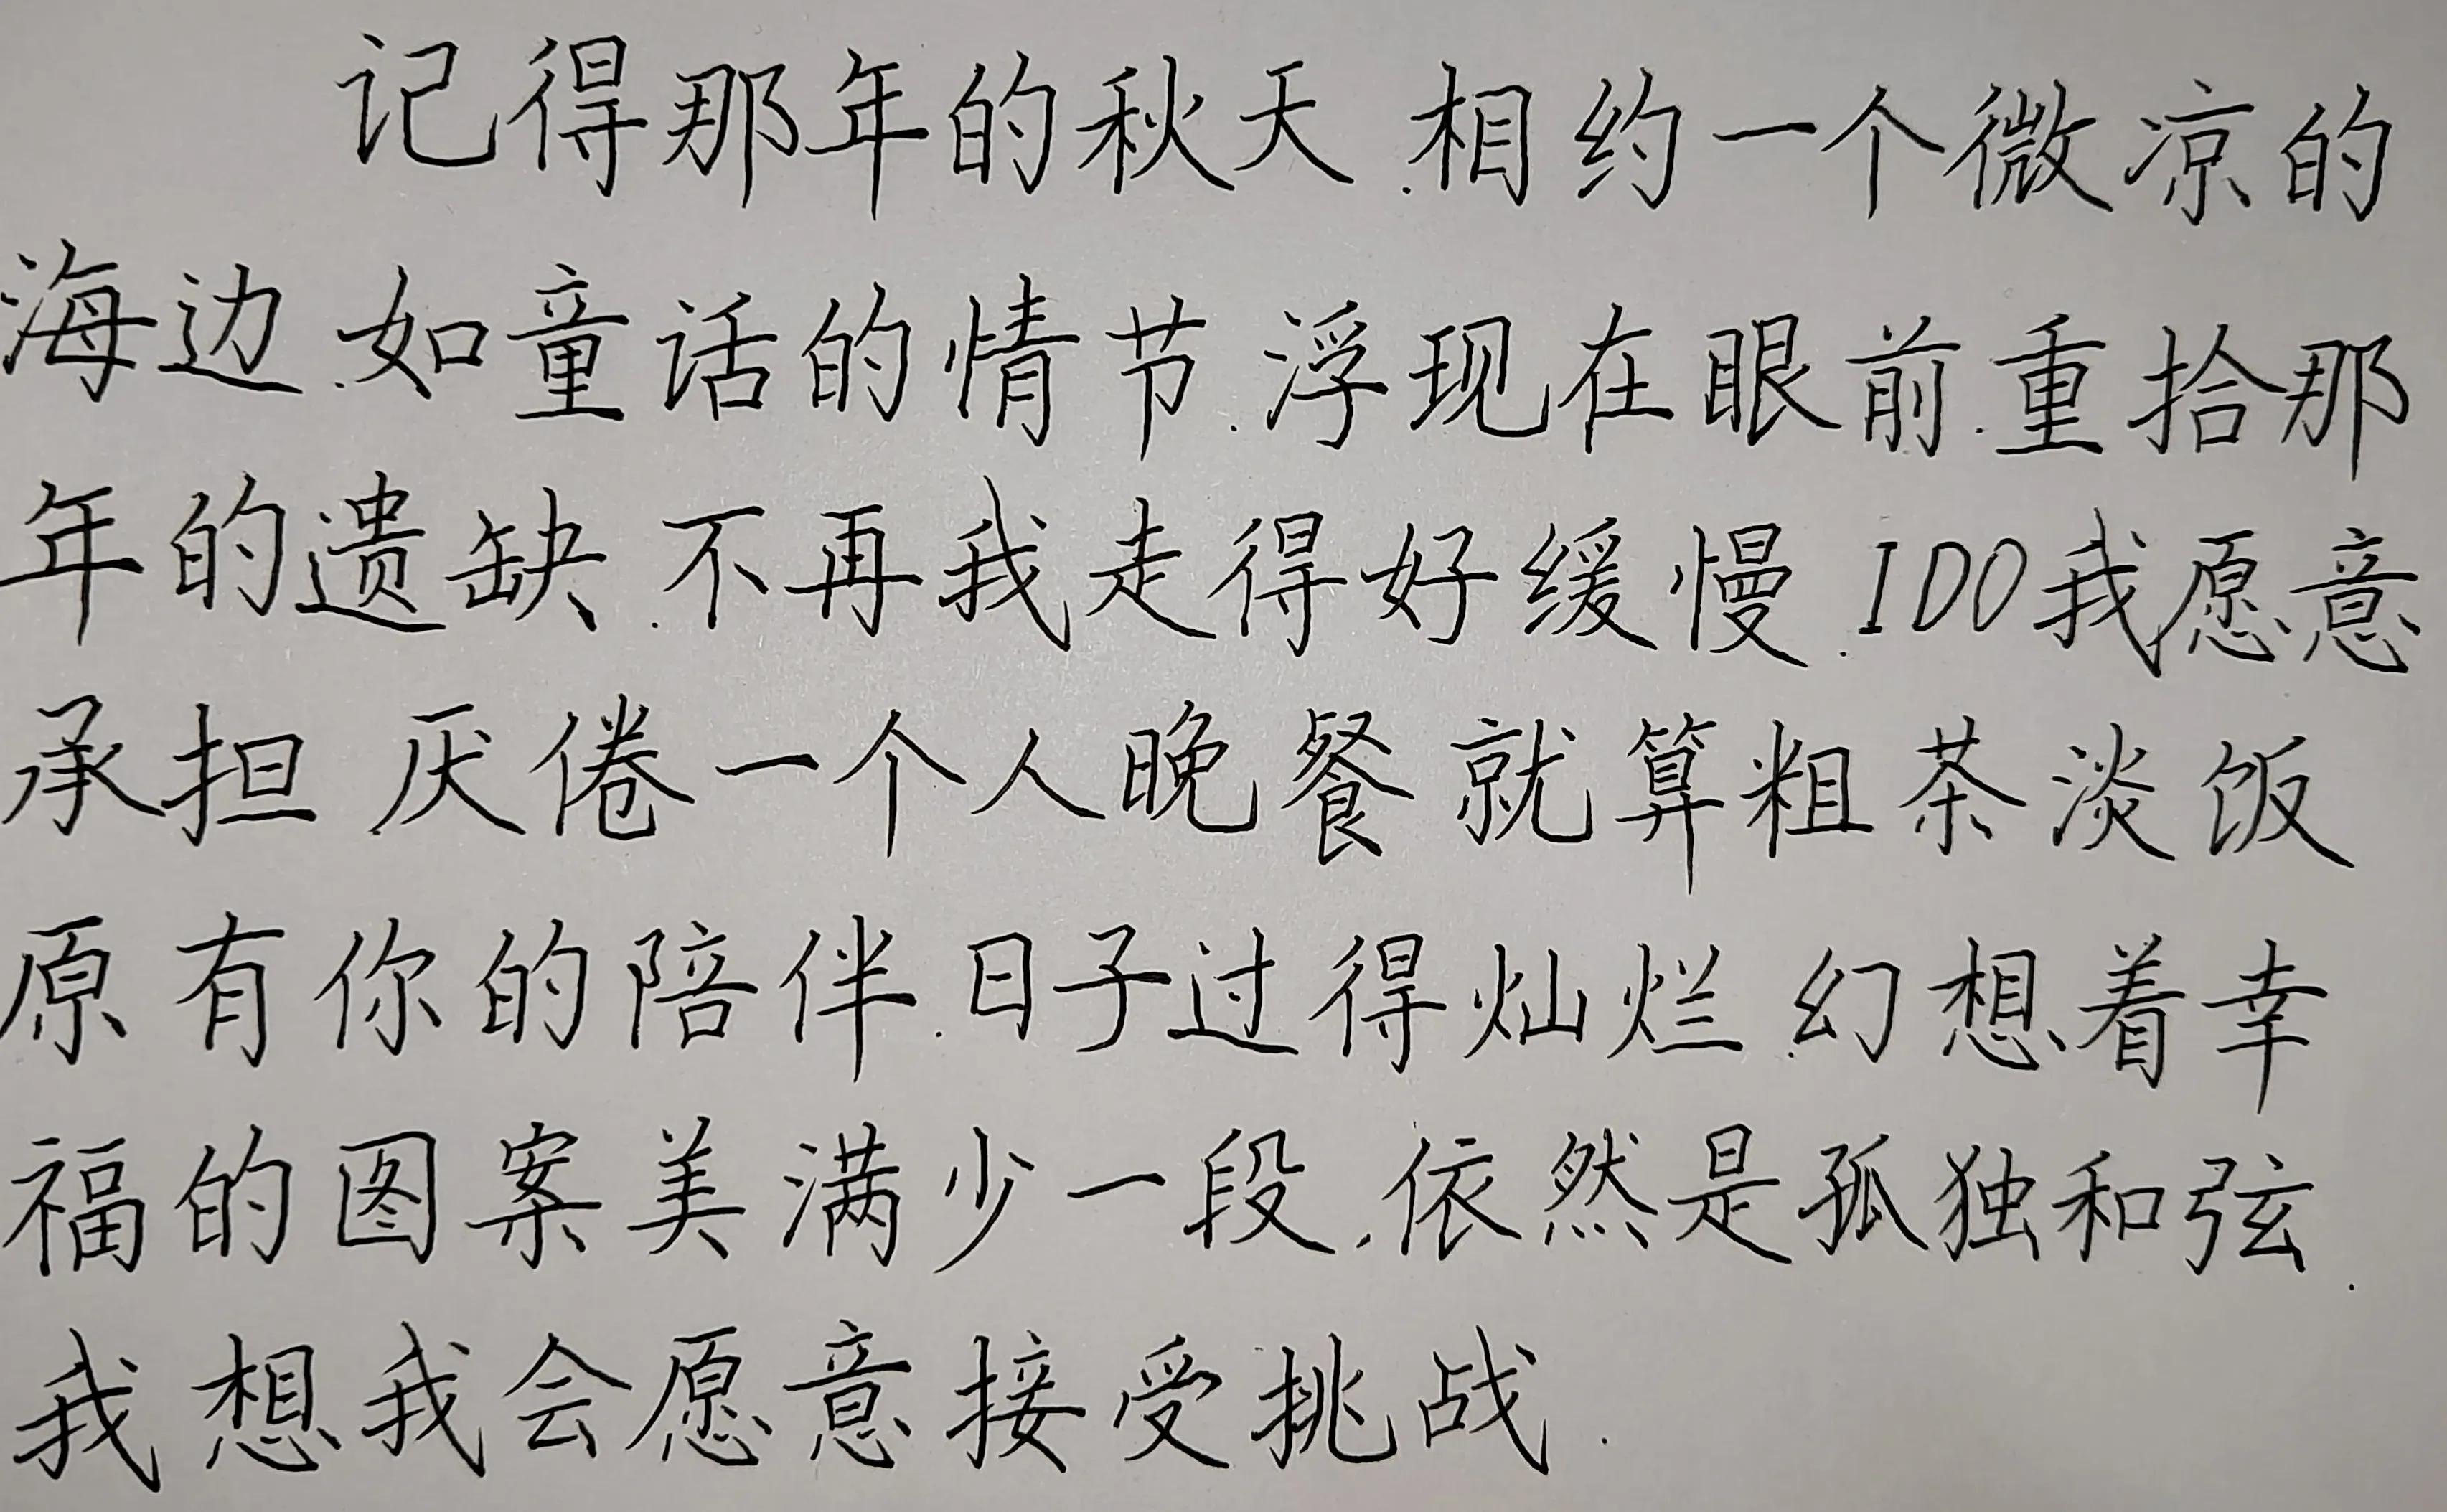 记得那年的秋天.相约一个微凉的
海边.如童话的情节.浮现在眼前.重拾那
年的遗缺.不再我走得好缓慢.IDO我愿意
承担.厌倦一个人晚餐就算粗茶淡饭
原有你的陪伴.日子过得灿烂.幻想着幸
福的图案美满少一段.依然是孤独和弦.
我想我会愿意接受挑战.